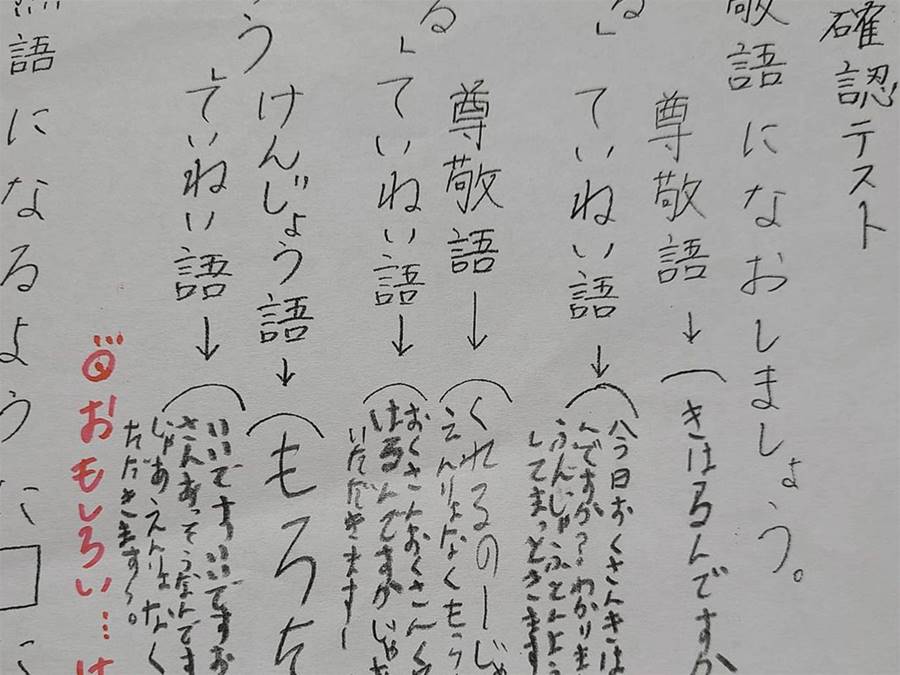 確認テスト
敬語になおしましょう。
尊敬語→(きはるんですか
る」ていねい語→(
今日おくさんきは
んですか?わかりま
してまっときます
尊敬語→(くれるのーじゃ
えんりょなくもら
る」ていねい語→(
おくさんおくさんく
はるんですかじゃあ
いただきますー
けんじょう語→(もろた
う」ていねい語→(
いいですいいですお
じゃあえんりょなく
ただきます〜。
◎おもしろい…は
語になるように□に